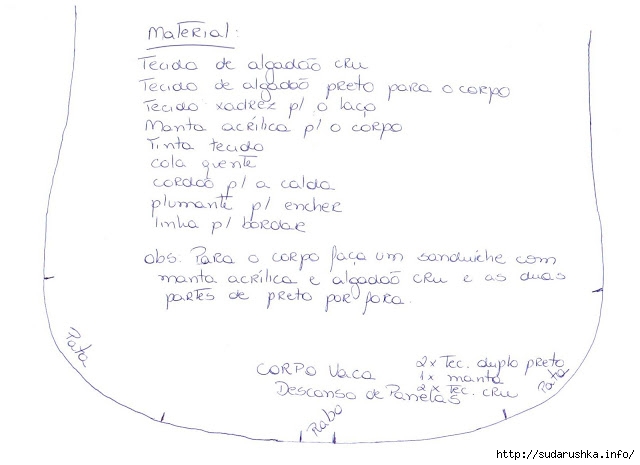 Material:
Tecido de algodão cru
Tecido de algodão preto para o corpo
Tecido xadrez p/ o laço
Manta acrílica p/ o corpo
Tinta tecido
cola quente
cordão p/ a calda
plumante p/ encher
linha p/ bordar
obs. Para o corpo faça um sanduiche com
manta acrílica e algodão cru e as duas
partes de preto por fora.
Pata
CORPO Vaca
Descanso de Panelas
2x Tec. duplo preto
1x manta
2x Tec. cru
Pata
Rabo
http://sudarushka.wp.pl/